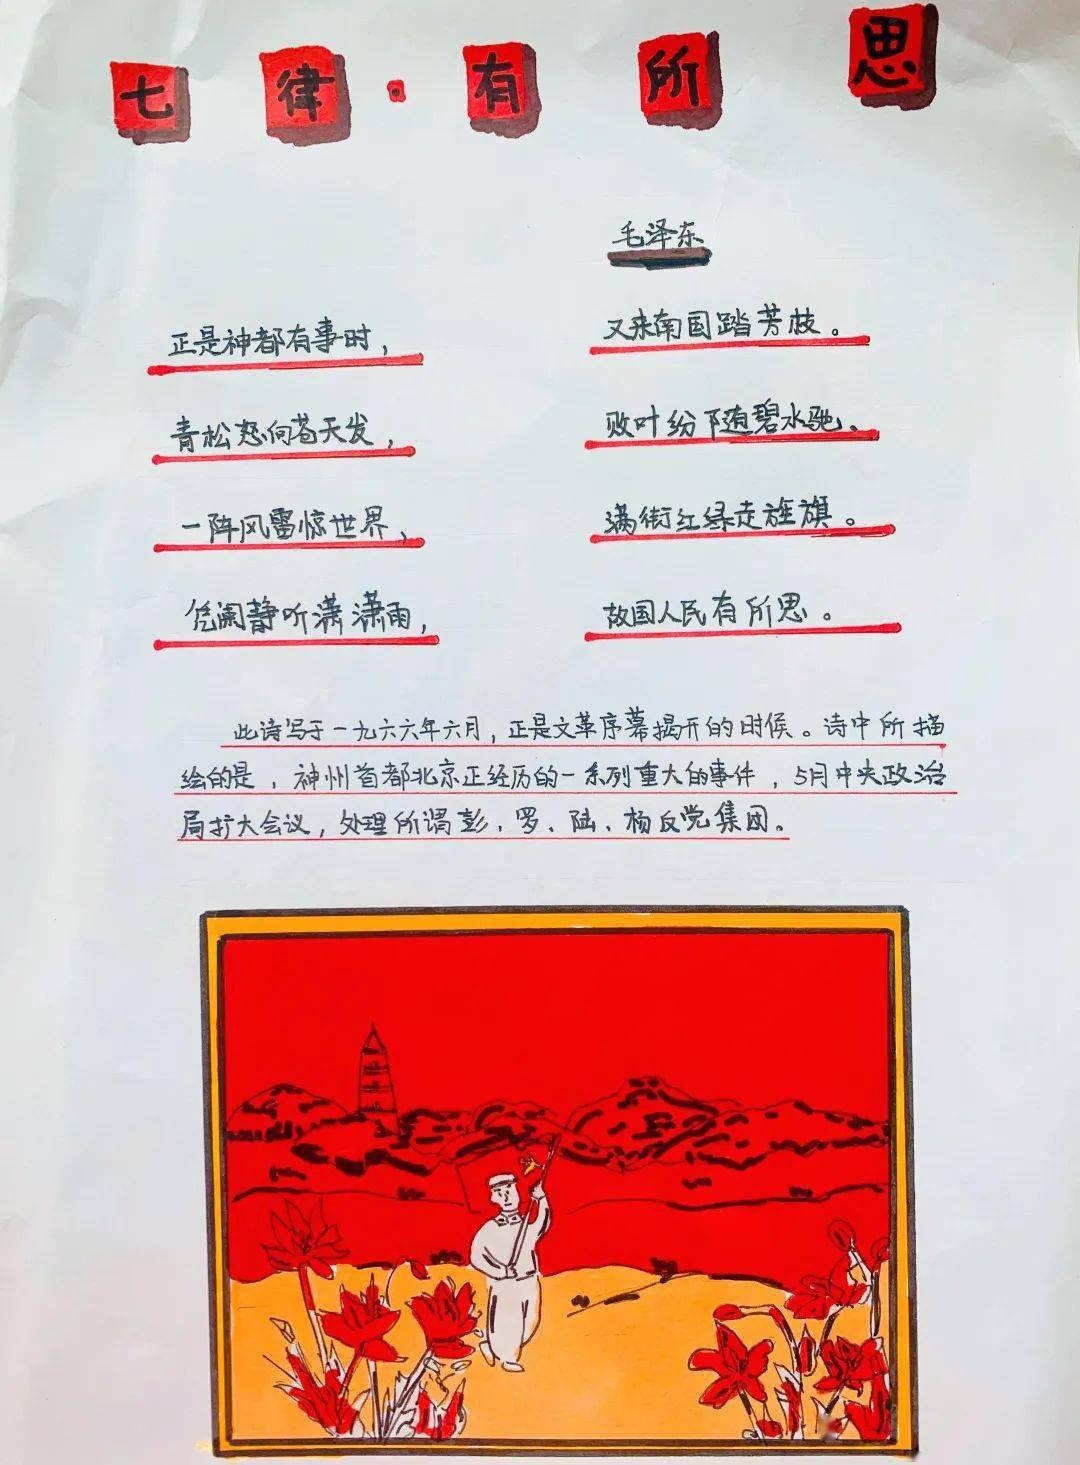 七律·有所思
毛泽东
正是神都有事时，又来南国踏芳枝。
青松怒向苍天发，败叶纷随碧水驰。
一阵风雷惊世界，满街红绿走旌旗。
凭阑静听潇潇雨，故国人民有所思。
此诗写于一九六六年六月，正是文革序幕揭开的时候。诗中所描
绘的是，神州首都北京正经历的一系列重大的事件，5月中央政治
局扩大会议，处理所谓彭、罗、陆、杨反党集团。